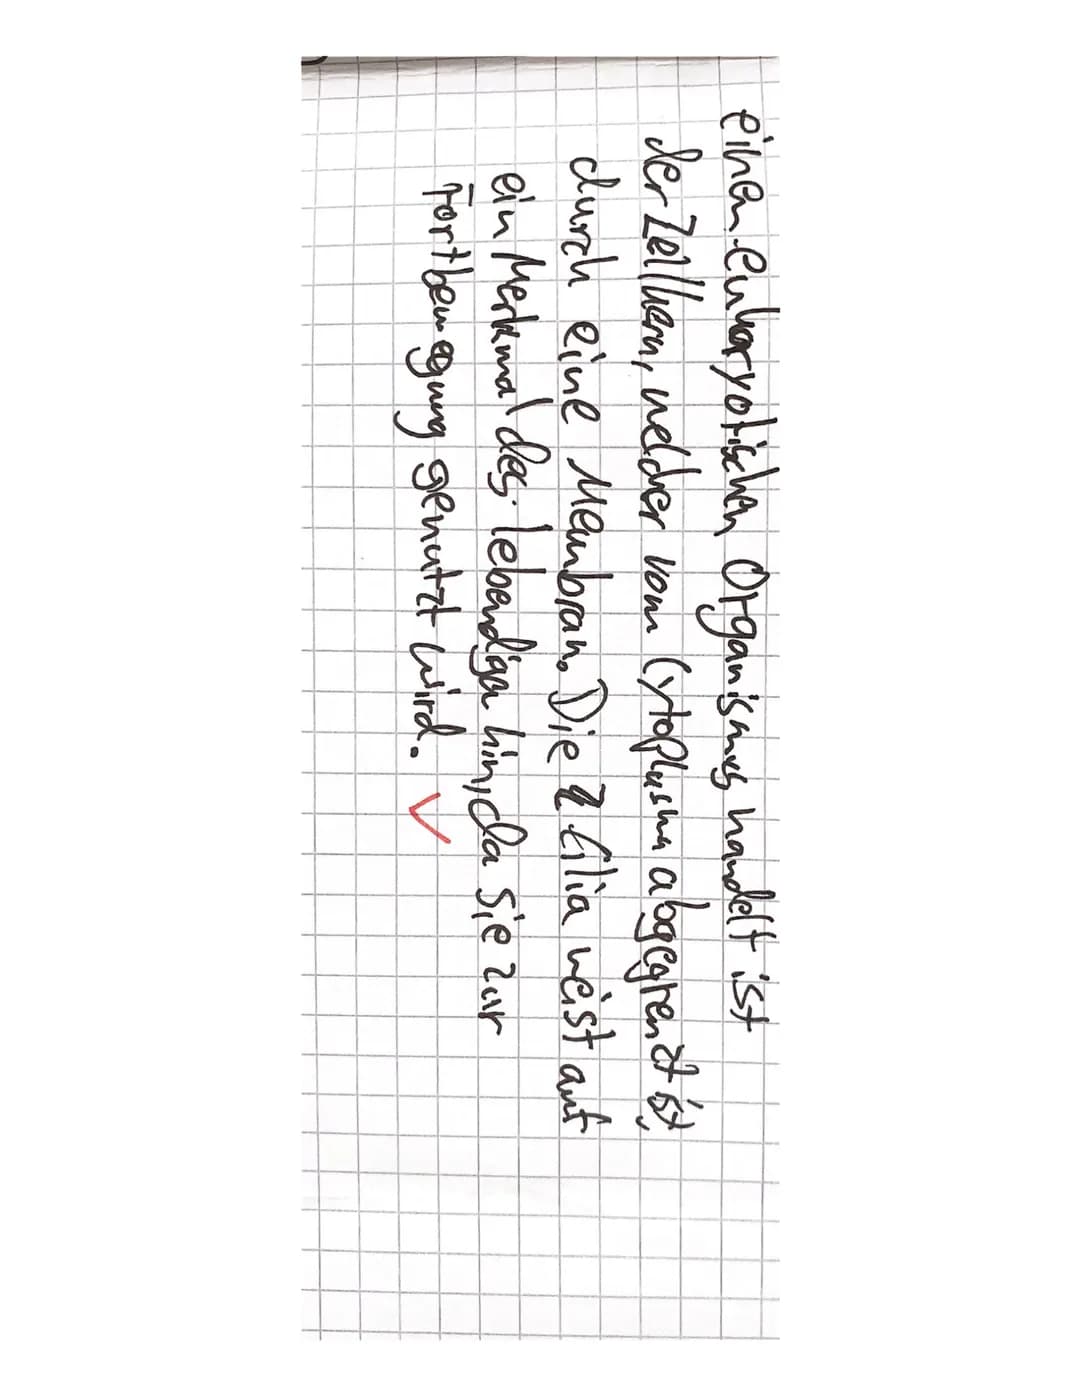 einen eukaryotischen Organismus handelt ist
der Zellkern, welcher vom Cytoplasma abgegrenzt ist,
durch eine Membran. Die Cilia weist auf
ein Merkmal des lebendigen hin, da sie zur
Fortbewegung genutzt wird.